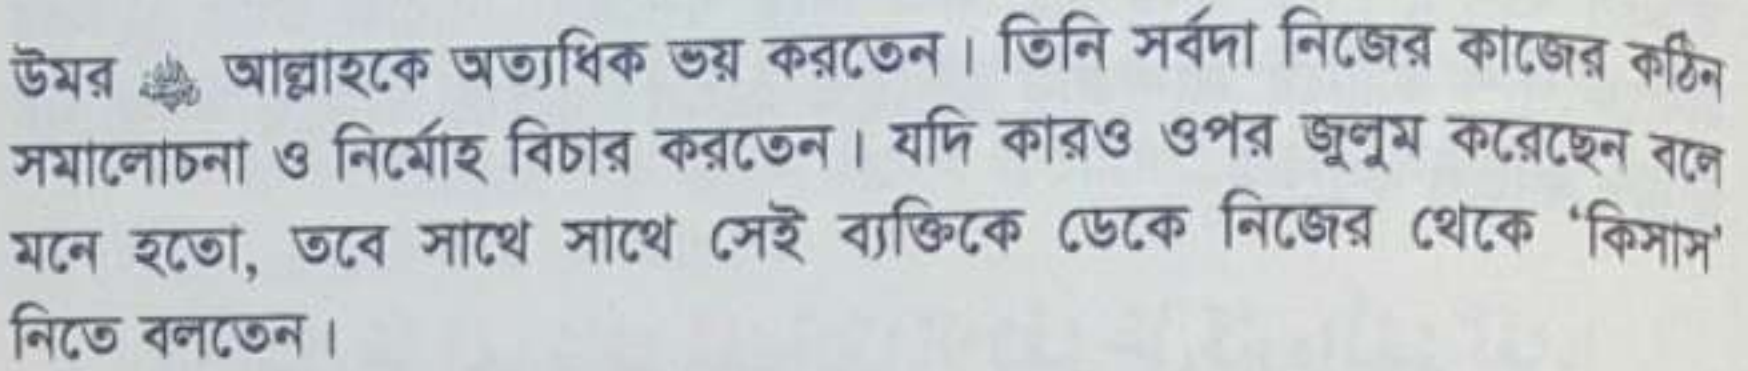 উমর আল্লাহকে অত্যধিক ভয় করতেন। তিনি সর্বদা নিজের কাজের কঠিন
সমালোচনা ও নির্মোহ বিচার করতেন। যদি কারও ওপর জুলুম করেছেন বলে
মনে হতো, তবে সাথে সাথে সেই ব্যক্তিকে ডেকে নিজের থেকে ‘কিসাস’
নিতে বলতেন।